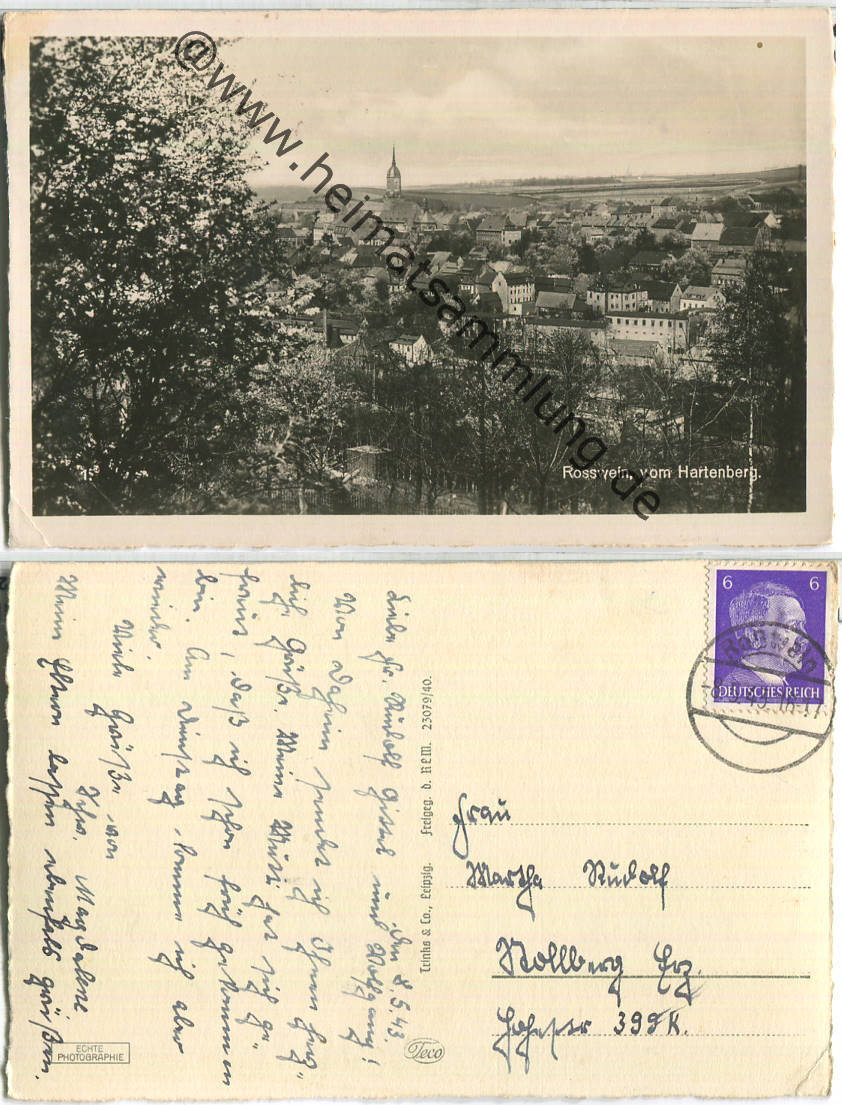 @www.heimatsammlung.de
Rosswein, vom Hartenberg.
6 6
DEUTSCHES REICH
Roßwein
Den 8.5.43.
Liebe Fr. Rudolf Gisel und Wolfgang!
Von Daheim sendet ich Ihnen herz-
lich Grüße. Meine Mutti hat sich ge-
freut, daß ich schon früh gekommen
bin. Am Dienstag komme ich aber
wieder.
Viele Grüße von
Ihr. Magdalene
Meine Eltern lassen ebenfalls grüßen.
Trinks & Co., Leipzig. Freigeg. d. RLM. 23079/40.
Frau
Martha Rudolf
Kollberg Erz.
399K.
ECHTE
PHOTOGRAPHIE
Teco